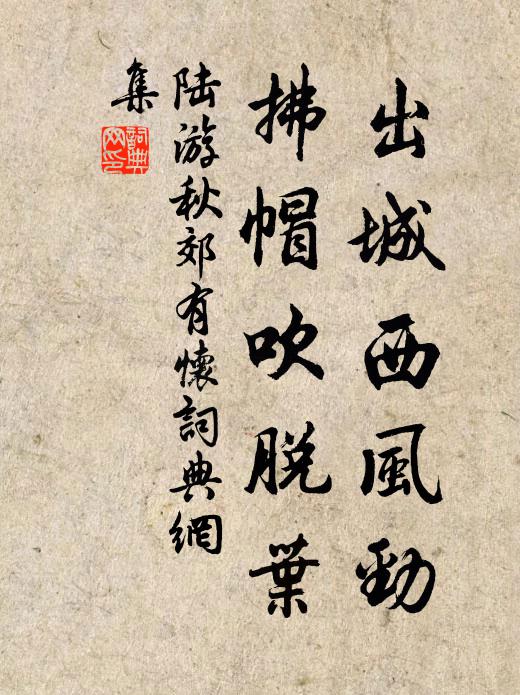 出城西風勁
拂帽吹脱葉
陆游秋郊有懷詞典網
集
詞典
网印